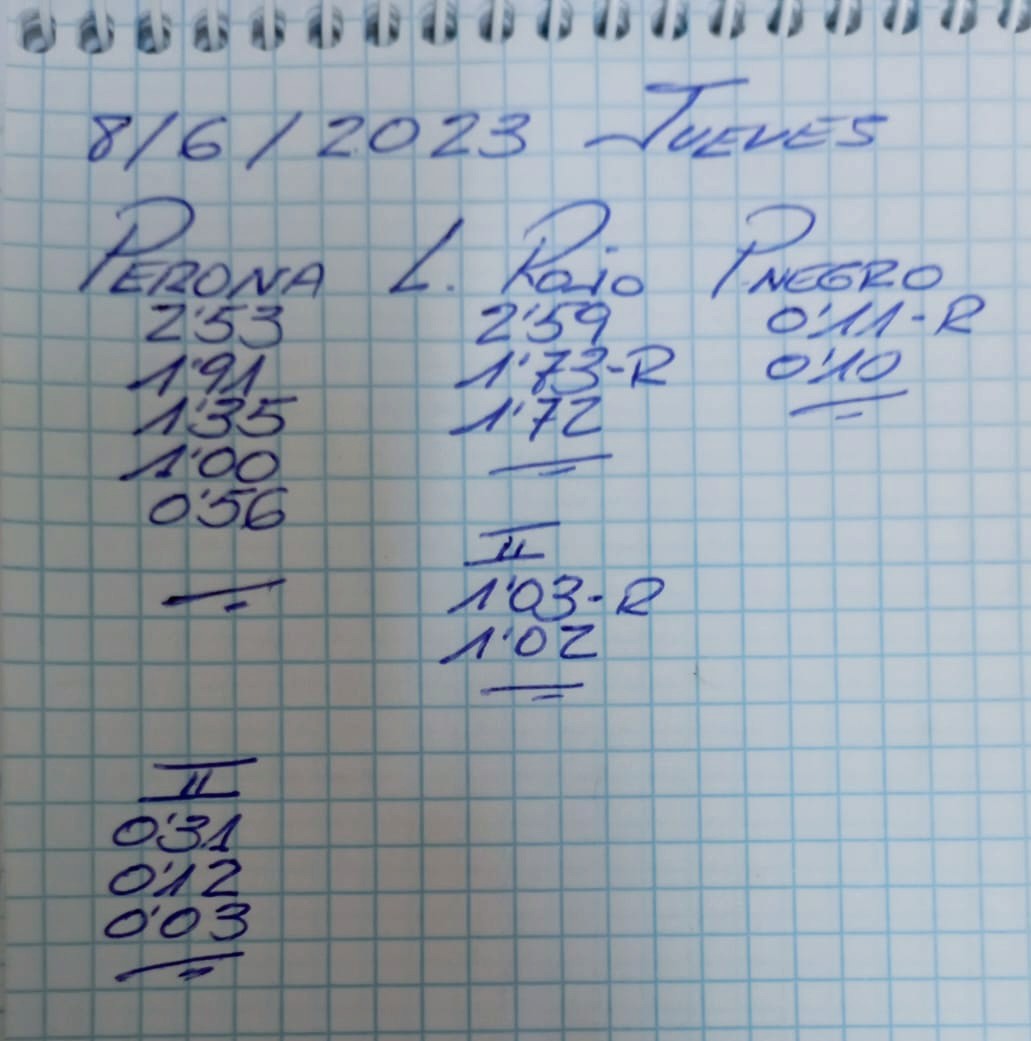 8/6/2023 JUEVES
PERONA L. ROJO P.NEGRO
2'53 2'59 0'11-R
1'91 1'73-R 0'10
1'35 1'72
1'00
0'56
II
1'03-R
1'02
II
0'31
0'12
0'03